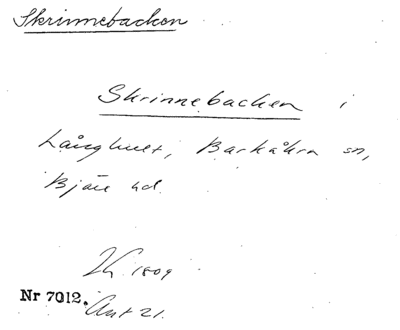 Skrinnebacken
Skrinnebacken i
Långhult, Barkåkra sn,
Bjäre hd.
1809
Nr 7012.
Akt 21.